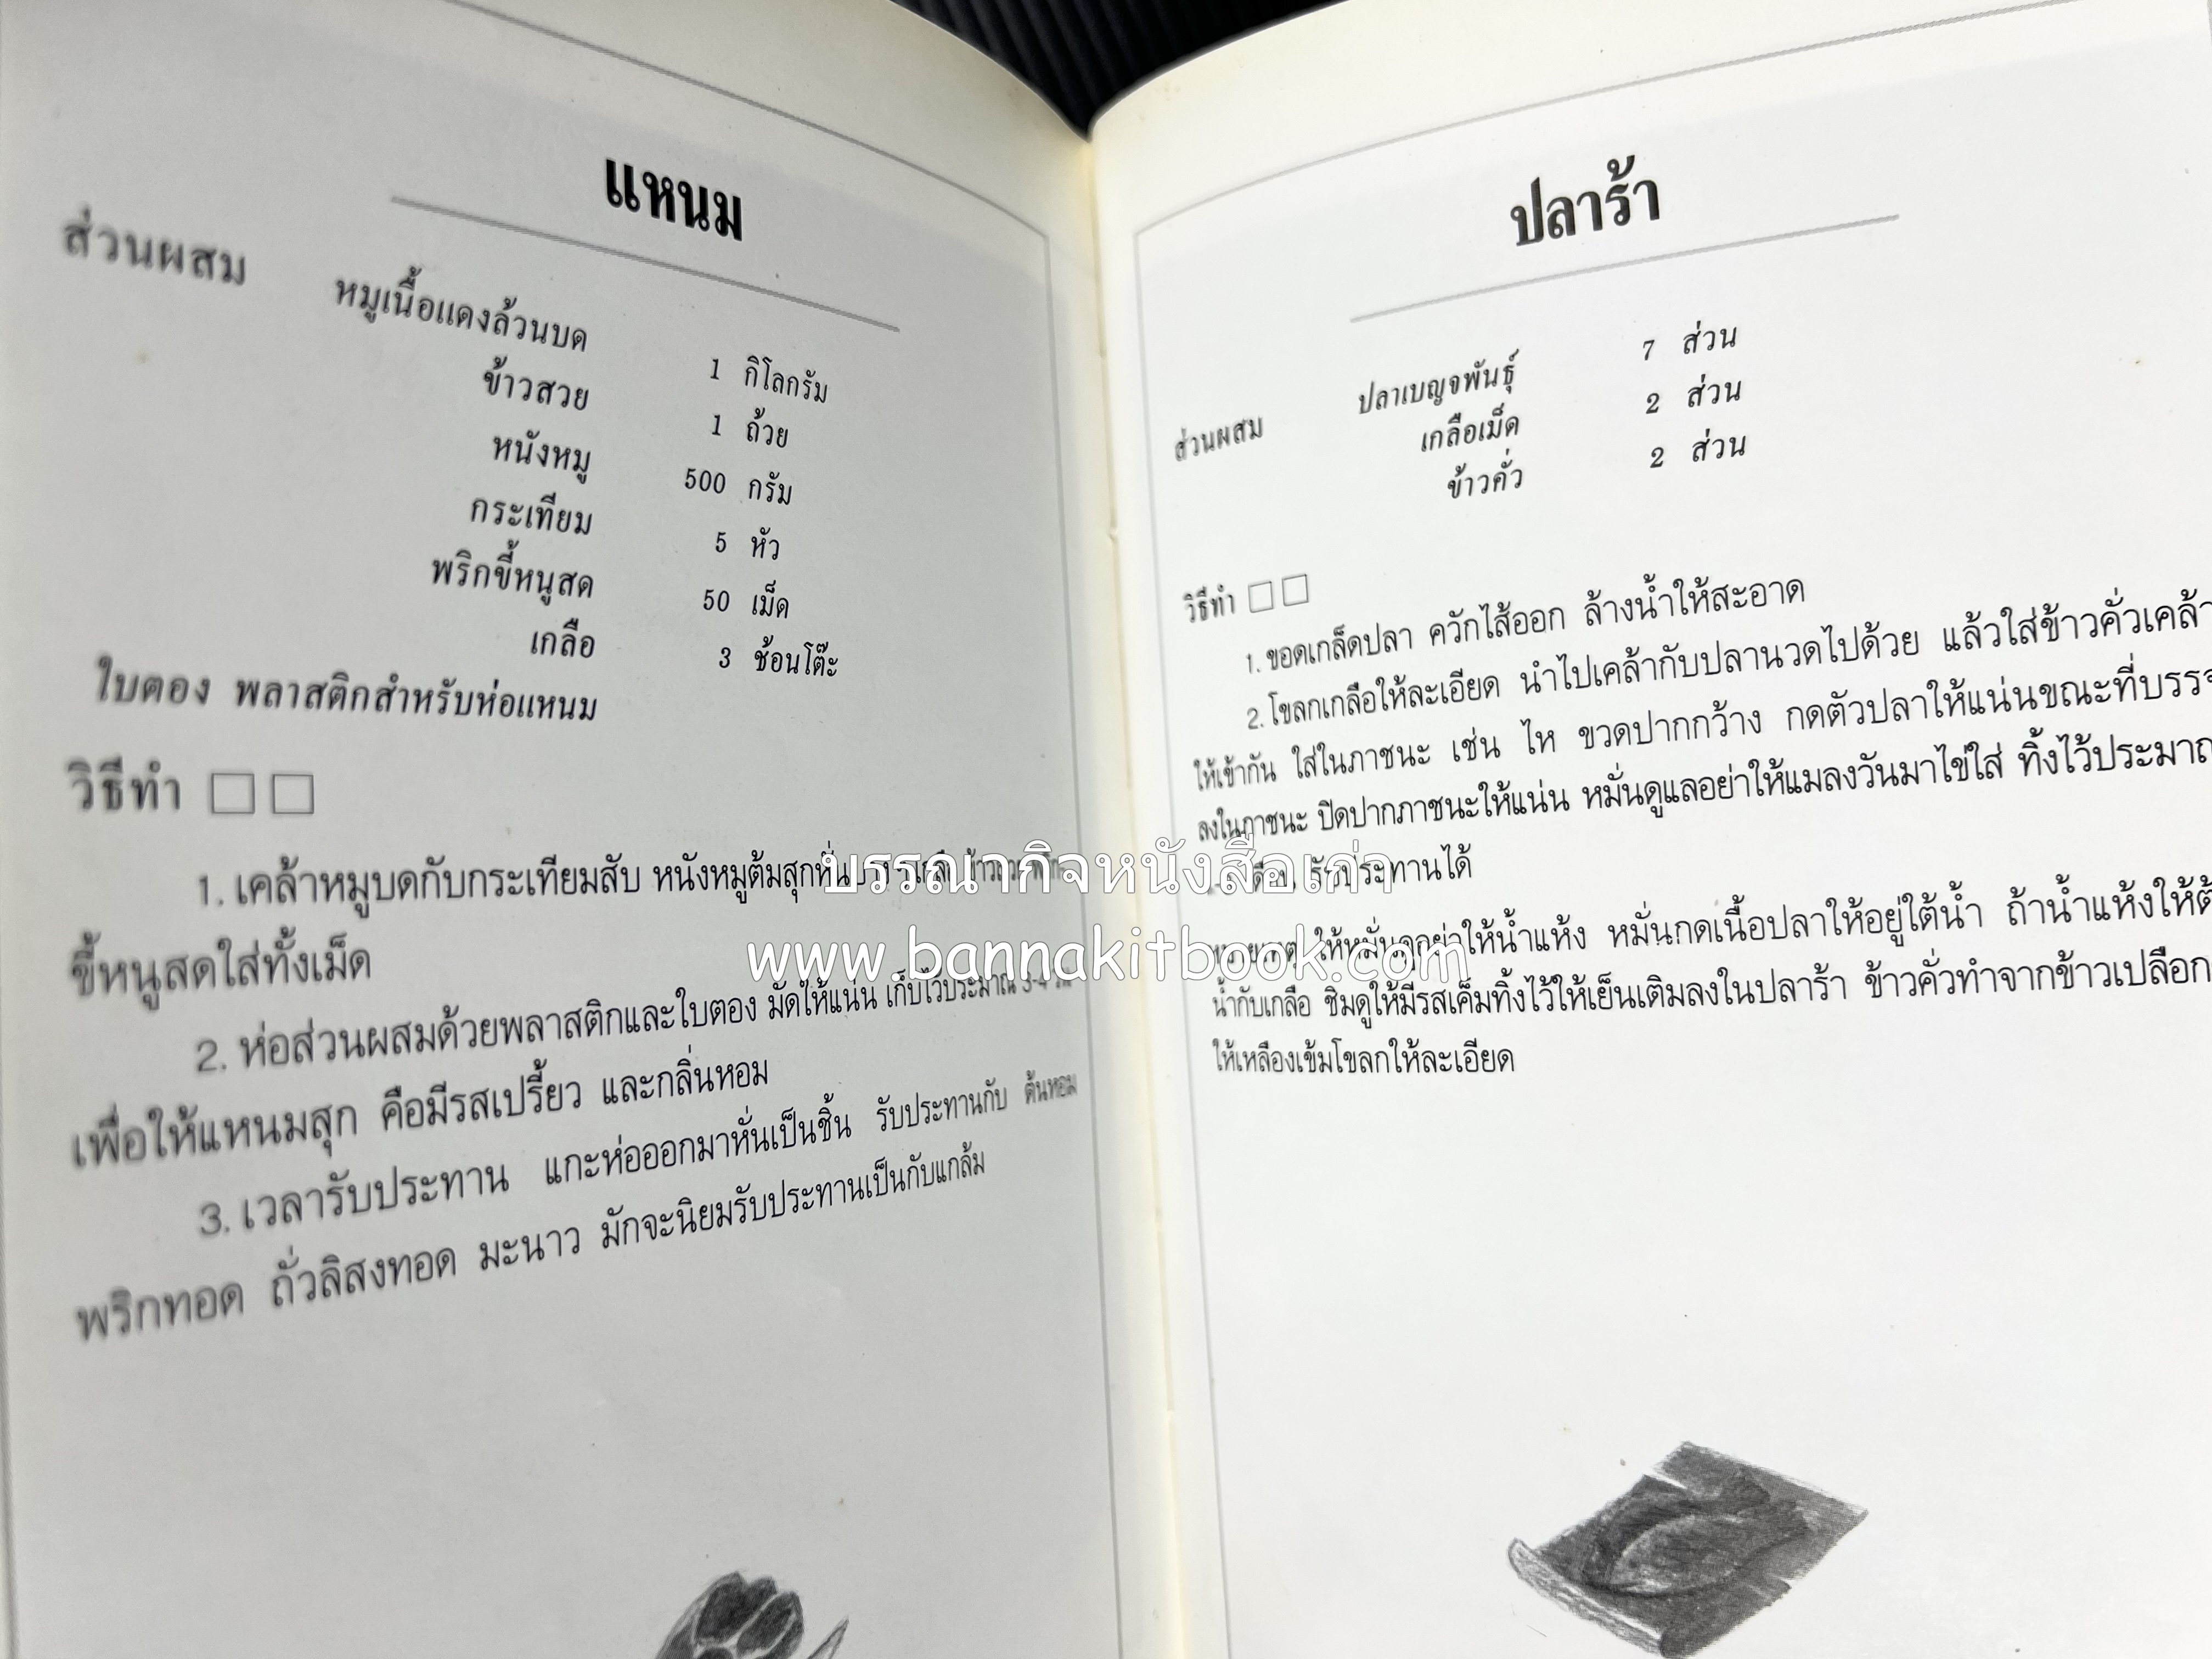 แหนม
ส่วนผสม
หมูเนื้อแดงล้วนบด 1 กิโลกรัม
ข้าวสวย 1 ถ้วย
หนังหมู 500 กรัม
กระเทียม 5 หัว
พริกขี้หนูสด 50 เม็ด
เกลือ 3 ช้อนโต๊ะ
ใบตอง พลาสติกสำหรับห่อแหนม
วิธีทำ □□
1. เคล้าหมูบดกับกระเทียมสับ หนังหมูต้มสุกหั่น
ขี้หนูสดใส่ทั้งเม็ด
2. ห่อส่วนผสมด้วยพลาสติกและใบตอง มัดให้แน่น เก็บไว้ประมาณ 3-4 วัน
เพื่อให้แหนมสุก คือมีรสเปรี้ยว และกลิ่นหอม
3. เวลารับประทาน แกะห่อออกมาหั่นเป็นชิ้น รับประทานกับ ต้นหอม
พริกทอด ถั่วลิสงทอด มะนาว มักจะนิยมรับประทานเป็นกับแกล้ม
ปลาร้า
ส่วนผสม
ปลาเบญจพันธุ์ 7 ส่วน
เกลือเม็ด 2 ส่วน
ข้าวคั่ว 2 ส่วน
วิธีทำ □□
1. ขอดเกล็ดปลา ควักไส้ออก ล้างน้ำให้สะอาด
2. โขลกเกลือให้ละเอียด นำไปเคล้ากับปลานวดไปด้วย แล้วใส่ข้าวคั่วเคล้า
ให้เข้ากัน ใส่ในภาชนะ เช่น ไห ขวดปากกว้าง กดตัวปลาให้แน่นขณะที่
ลงในภาชนะ ปิดปากภาชนะให้แน่น หมั่นดูแลอย่าให้แมลงวันมาไข่ใส่ ทิ้งไว้ประมาณ
เดือน รับประทานได้
หมายเหตุ ให้หมั่นดูอย่าให้น้ำแห้ง หมั่นกดเนื้อปลาให้อยู่ใต้น้ำ ถ้าน้ำแห้งให้ต้
น้ำกับเกลือ ชิมดูให้มีรสเค็มทิ้งไว้ให้เย็นเติมลงในปลาร้า ข้าวคั่วทำจากข้าวเปลือก
ให้เหลืองเข้มโขลกให้ละเอียด
บรรณากิจหนังสือเก่า
www.bannakitbook.com